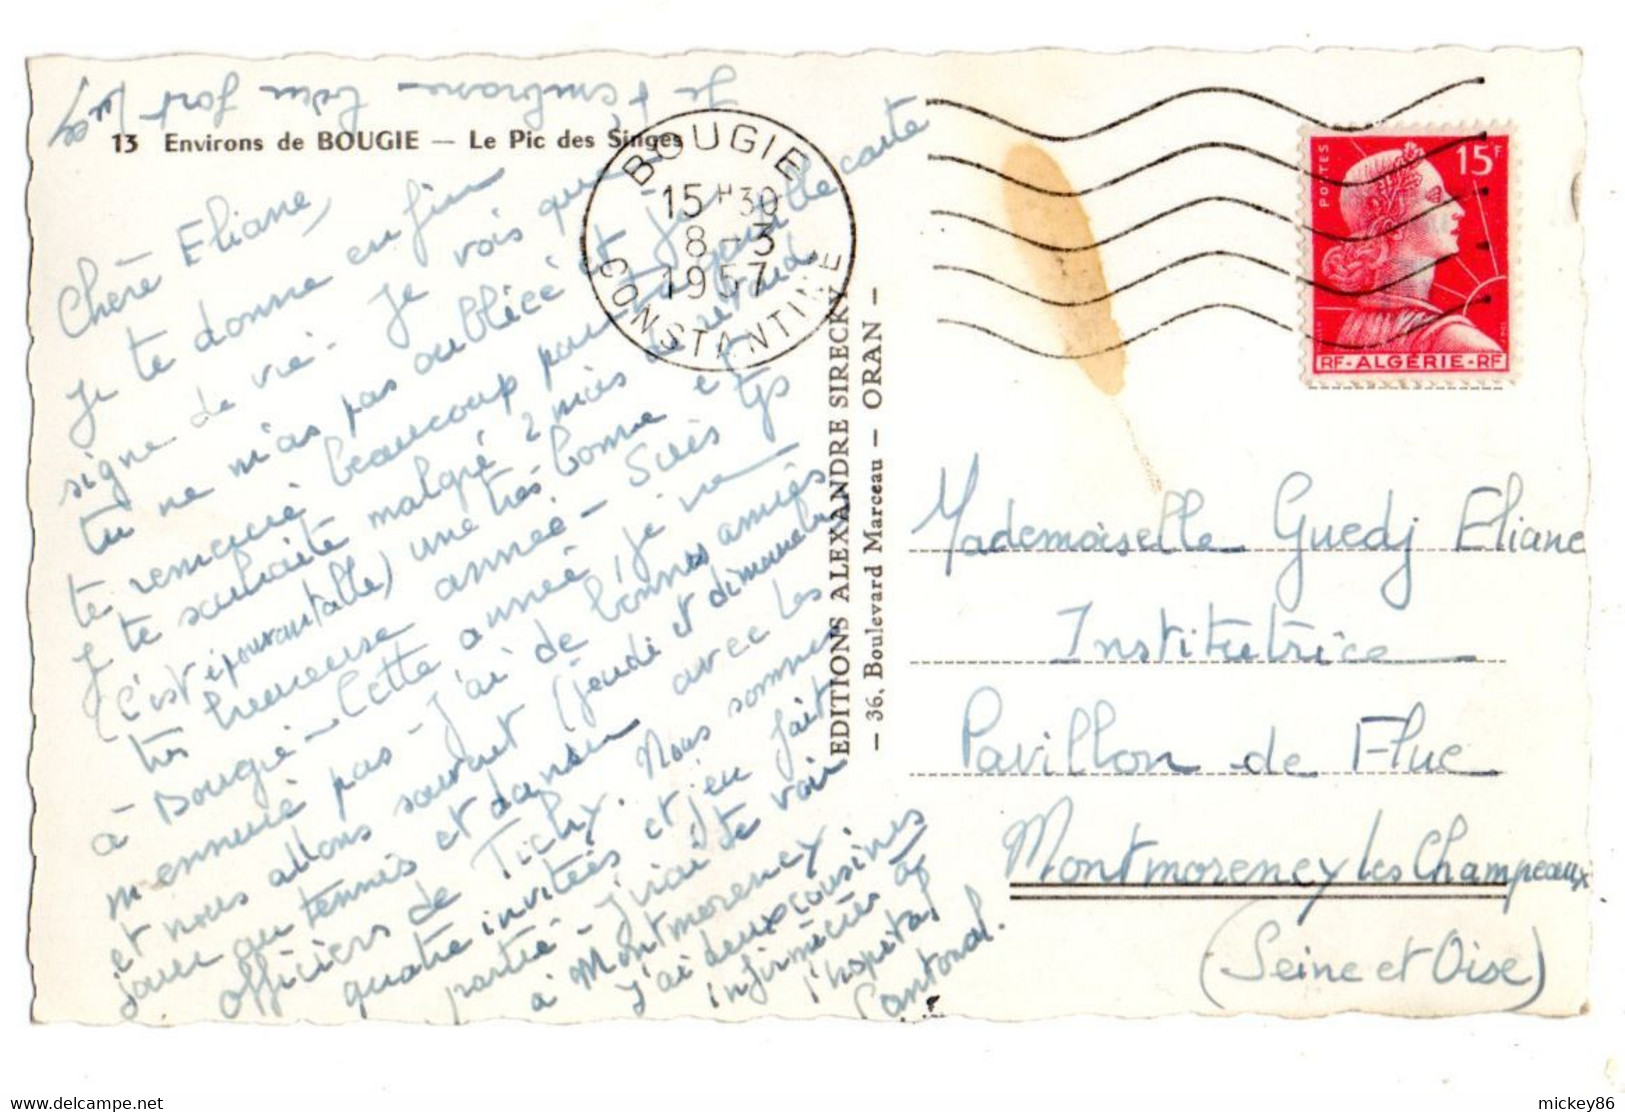 13 Environs de BOUGIE — Le Pic des Singes
Je t'embrasse bien fort
Chère Eliane,
Je te donne enfin
signe de vie. Je vois que
tu ne m'as pas oubliée et je
te remercie beaucoup pour ta gentille carte
Je te souhaite malgré 2 mois de retard
(c'est épouvantable) une très bonne et
très heureuse année - Suis tjs
à Bougie - Cette année, je ne
m'ennuie pas - J'ai de bonnes amies
et nous allons souvent (jeudi et dimanche)
jouer au tennis et danser avec les
officiers de Tichy. Nous sommes
quatre invitées et j'en fait
partie - J'irai te voir
à Montmorency
J'ai deux cousines
infirmières à
l'hopital
Cantonal.
BOUGIE
15 H 30
8 - 3
1957
CONSTANTINE
EDITIONS ALEXANDRE SIRECKY
— 36, Boulevard Marceau — ORAN —
POSTES
15F
RF - ALGÉRIE - RF
Mademoiselle Guedj Eliane
Institutrice
Pavillon de Flue
Montmorency les Champeaux
(Seine et Oise)
delcampe.net
mickey86